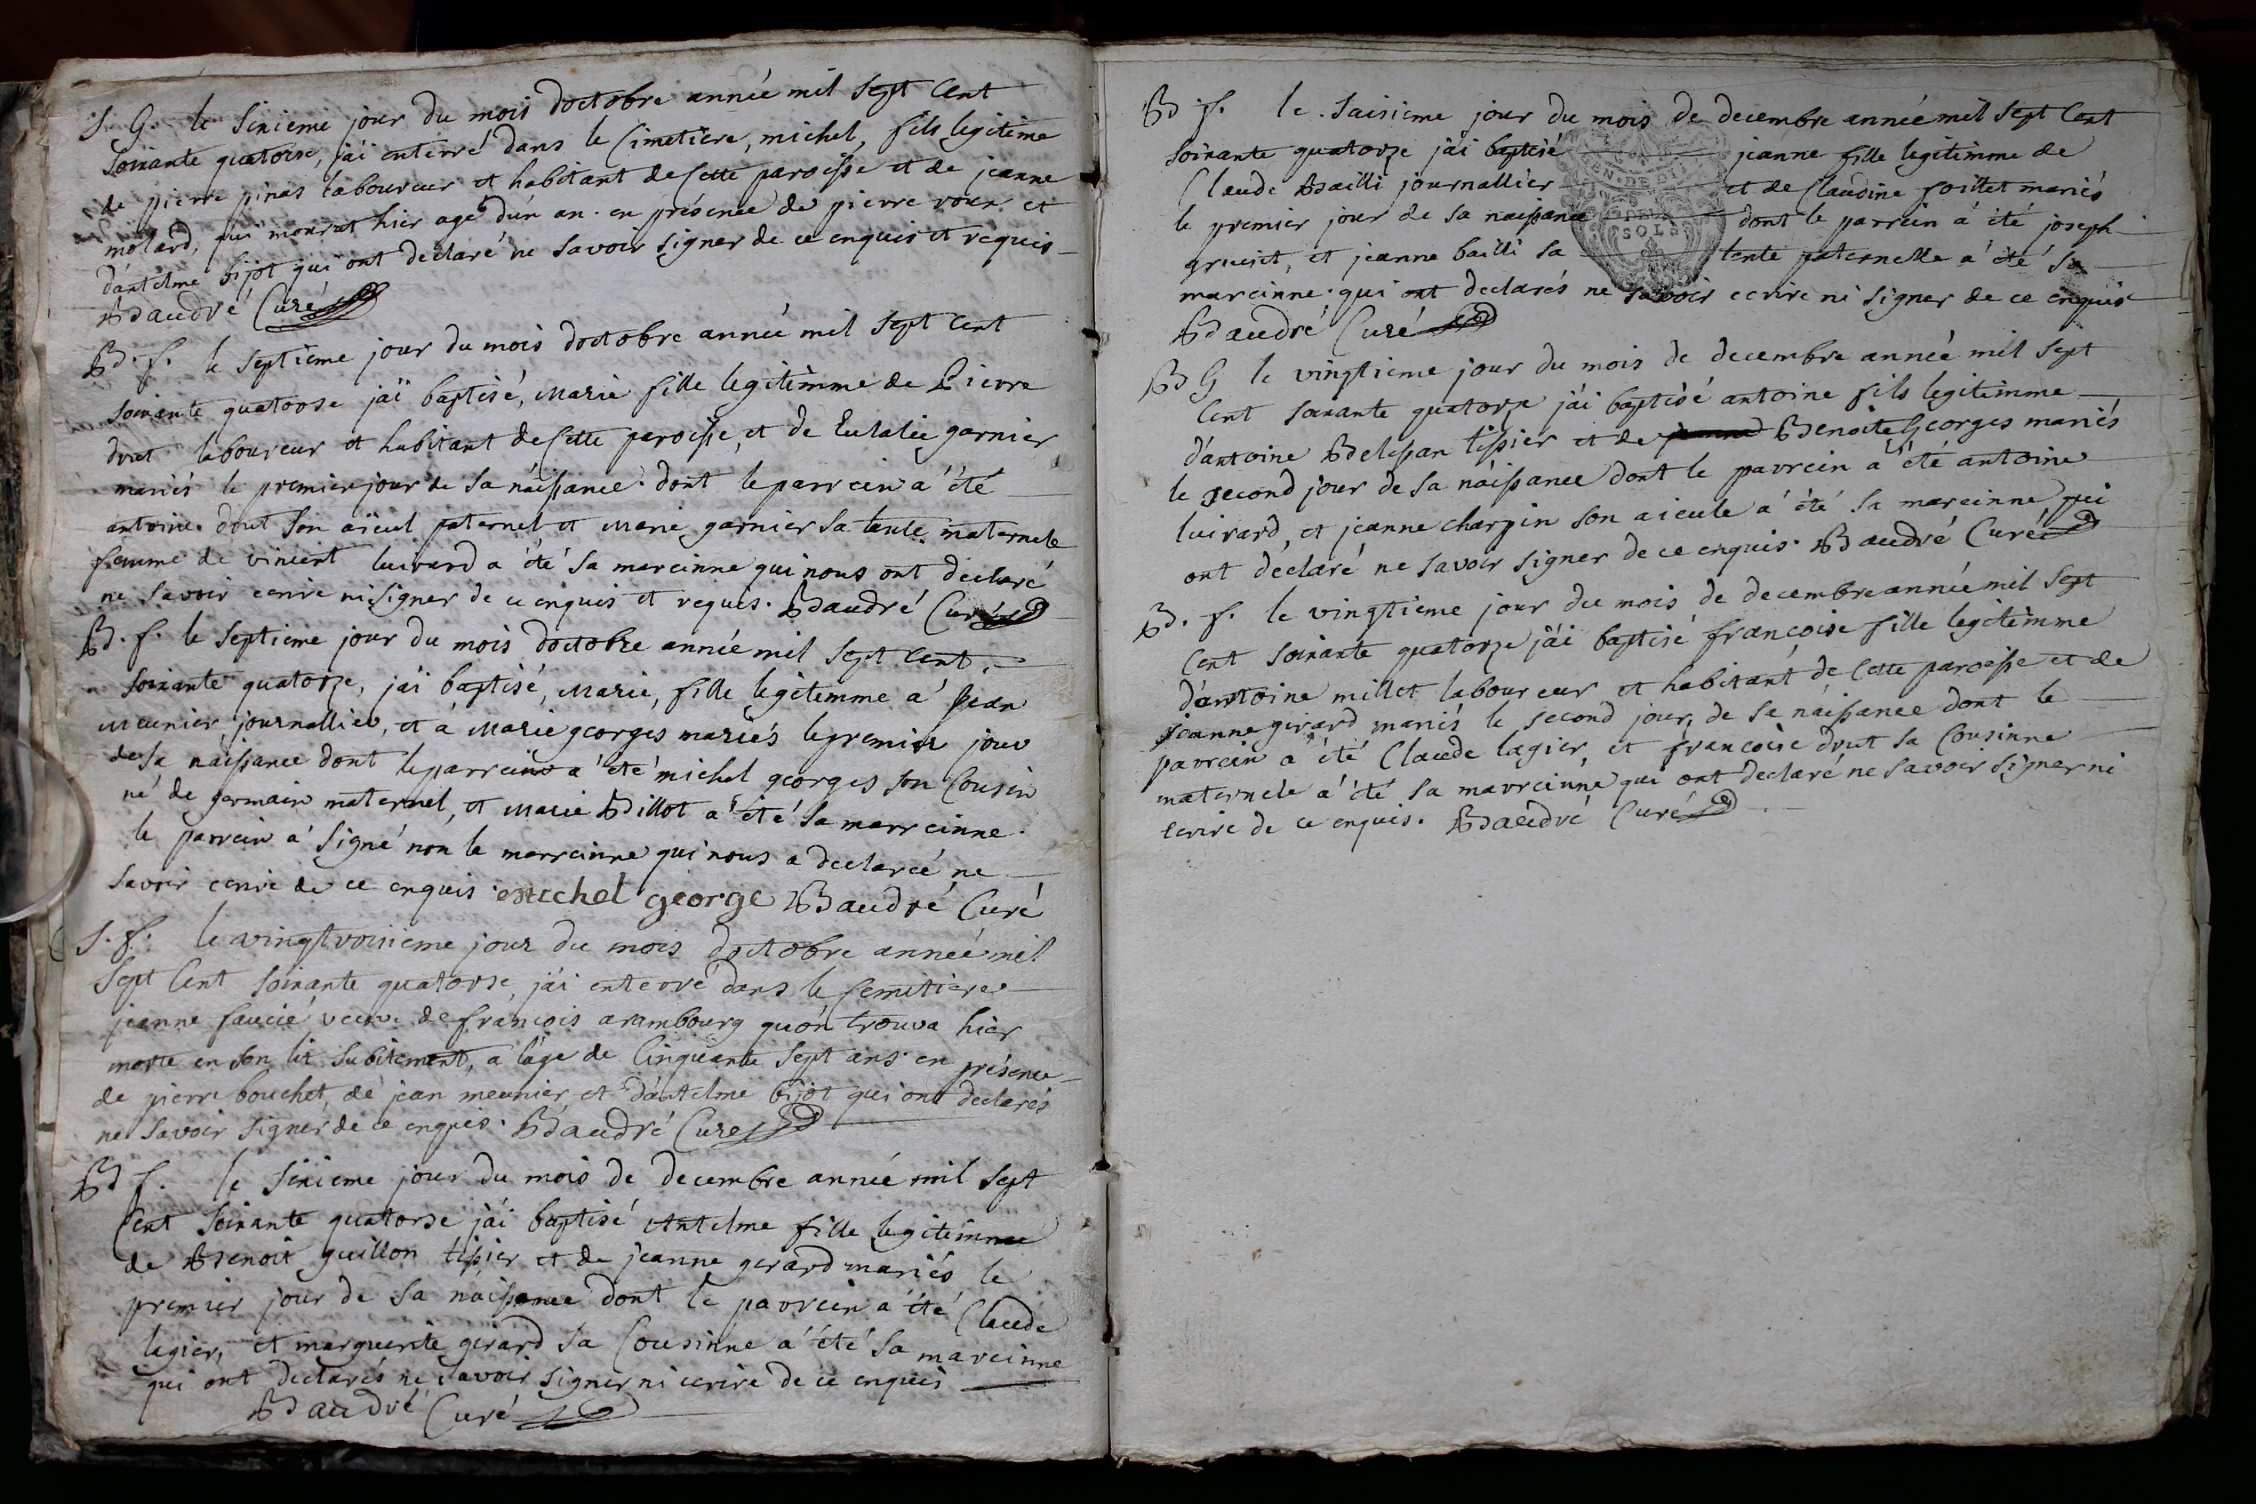 S. G. le sixieme jour du mois doctobre année mil sept cent
soixante quatorse, j'ai enterré dans le cimetiere, michel, fils legitime
de pierre pinas laboureur et habitant de cette paroisse et de jeanne
molard, qui mourut hier agé d'un an. en présence de pierre roux et
d'antelme bijot qui ont declaré ne savoir signer de ce enquis et requis
Baudré Curé
B. f. le septieme jour du mois doctobre année mil sept cent
soixante quatorse jai baptisé, Marie fille legitimme de Pierre
drut laboureur et habitant de cette paroisse, et de Eulalie garnier
mariés le premier jour de sa naissance. dont le parrein a été
antoine drut son aïeul paternel et Marie garnier sa tante maternele
femme de vincent luivard a été sa mareinne qui nous ont declaré
ne savoir ecrire ni signer de ce enquis et requis. Baudré Curé
B. f. le septieme jour du mois doctobre année mil sept cent
soixante quatorze, jai baptisé, Marie, fille legitemme a jean
Meunier, journallier, et a Marie georges mariés le premier jour
de sa naissance dont le parrein a été michel georges son cousin
né de germain maternel, et Marie Billot a été sa marreinne.
le parrein a signé non la marreinne qui nous a declarée ne
savoir ecrire de ce enquis. michel george Baudré Curé
S. f. le vingtroisieme jour du mois doctobre année mil
sept cent soixante quatorse, j'ai enterré dans le semitiere
jeanne faucié veuve de françois arambourg qu'on trouva hier
morte en son lit subitement, a l'age de cinquante sept ans. en présence
de pierre bouchet, de jean meunier et d'antelme bijot qui ont declarés
ne savoir signer de ce enquis. Baudré Curé
B f. le sixieme jour du mois de decembre année mil sept
cent soixante quatorse j'ai baptisé Antelme fille legitimme
de Benoit guillon tissier et de jeanne gerard mariés le
premier jour de sa naissance dont le parrein a été Claude
lagier, et marguerite girard sa cousinne a été sa mareinne
qui ont declarés ne savoir signer ni ecrire de ce enquis
Baudré Curé
B f. le saisieme jour du mois de decembre année mil sept cent
soixante quatorze j'ai baptisé jeanne fille legitimme de
Claude Bailli journallier et de Claudine soillet mariés
le premier jour de sa naissance dont le parrein a été joseph
gruict, et jeanne bailli sa tente paternelle a été sa
mareinne. qui ont declarés ne savoir ecrire ni signer de ce enquis
Baudré Curé
B G le vingtieme jour du mois de decembre année mil sept
cent soixante quatorze j'ai baptisé antoine fils legitimme
d'antoine Belissan tissier et de Benoite georges mariés
le second jour de sa naissance dont le parrein a été antoine
luivard, et jeanne charpin son aieule a été sa mareinne, qui
ont declaré ne savoir signer de ce enquis. Baudré Curé
B. f. le vingtieme jour du mois de decembre année mil sept
cent soixante quatorze j'ai baptisé françoise fille legitimme
d'antoine millet laboureur et habitant de cette paroisse et de
jeanne gerard mariés le second jour, de sa naissance dont le
parrein a été Claude lagier, et françoise drut sa cousinne
maternele a été sa marreinne qui ont declaré ne savoir signer ni
ecrire de ce enquis. Baudré Curé
SOLS